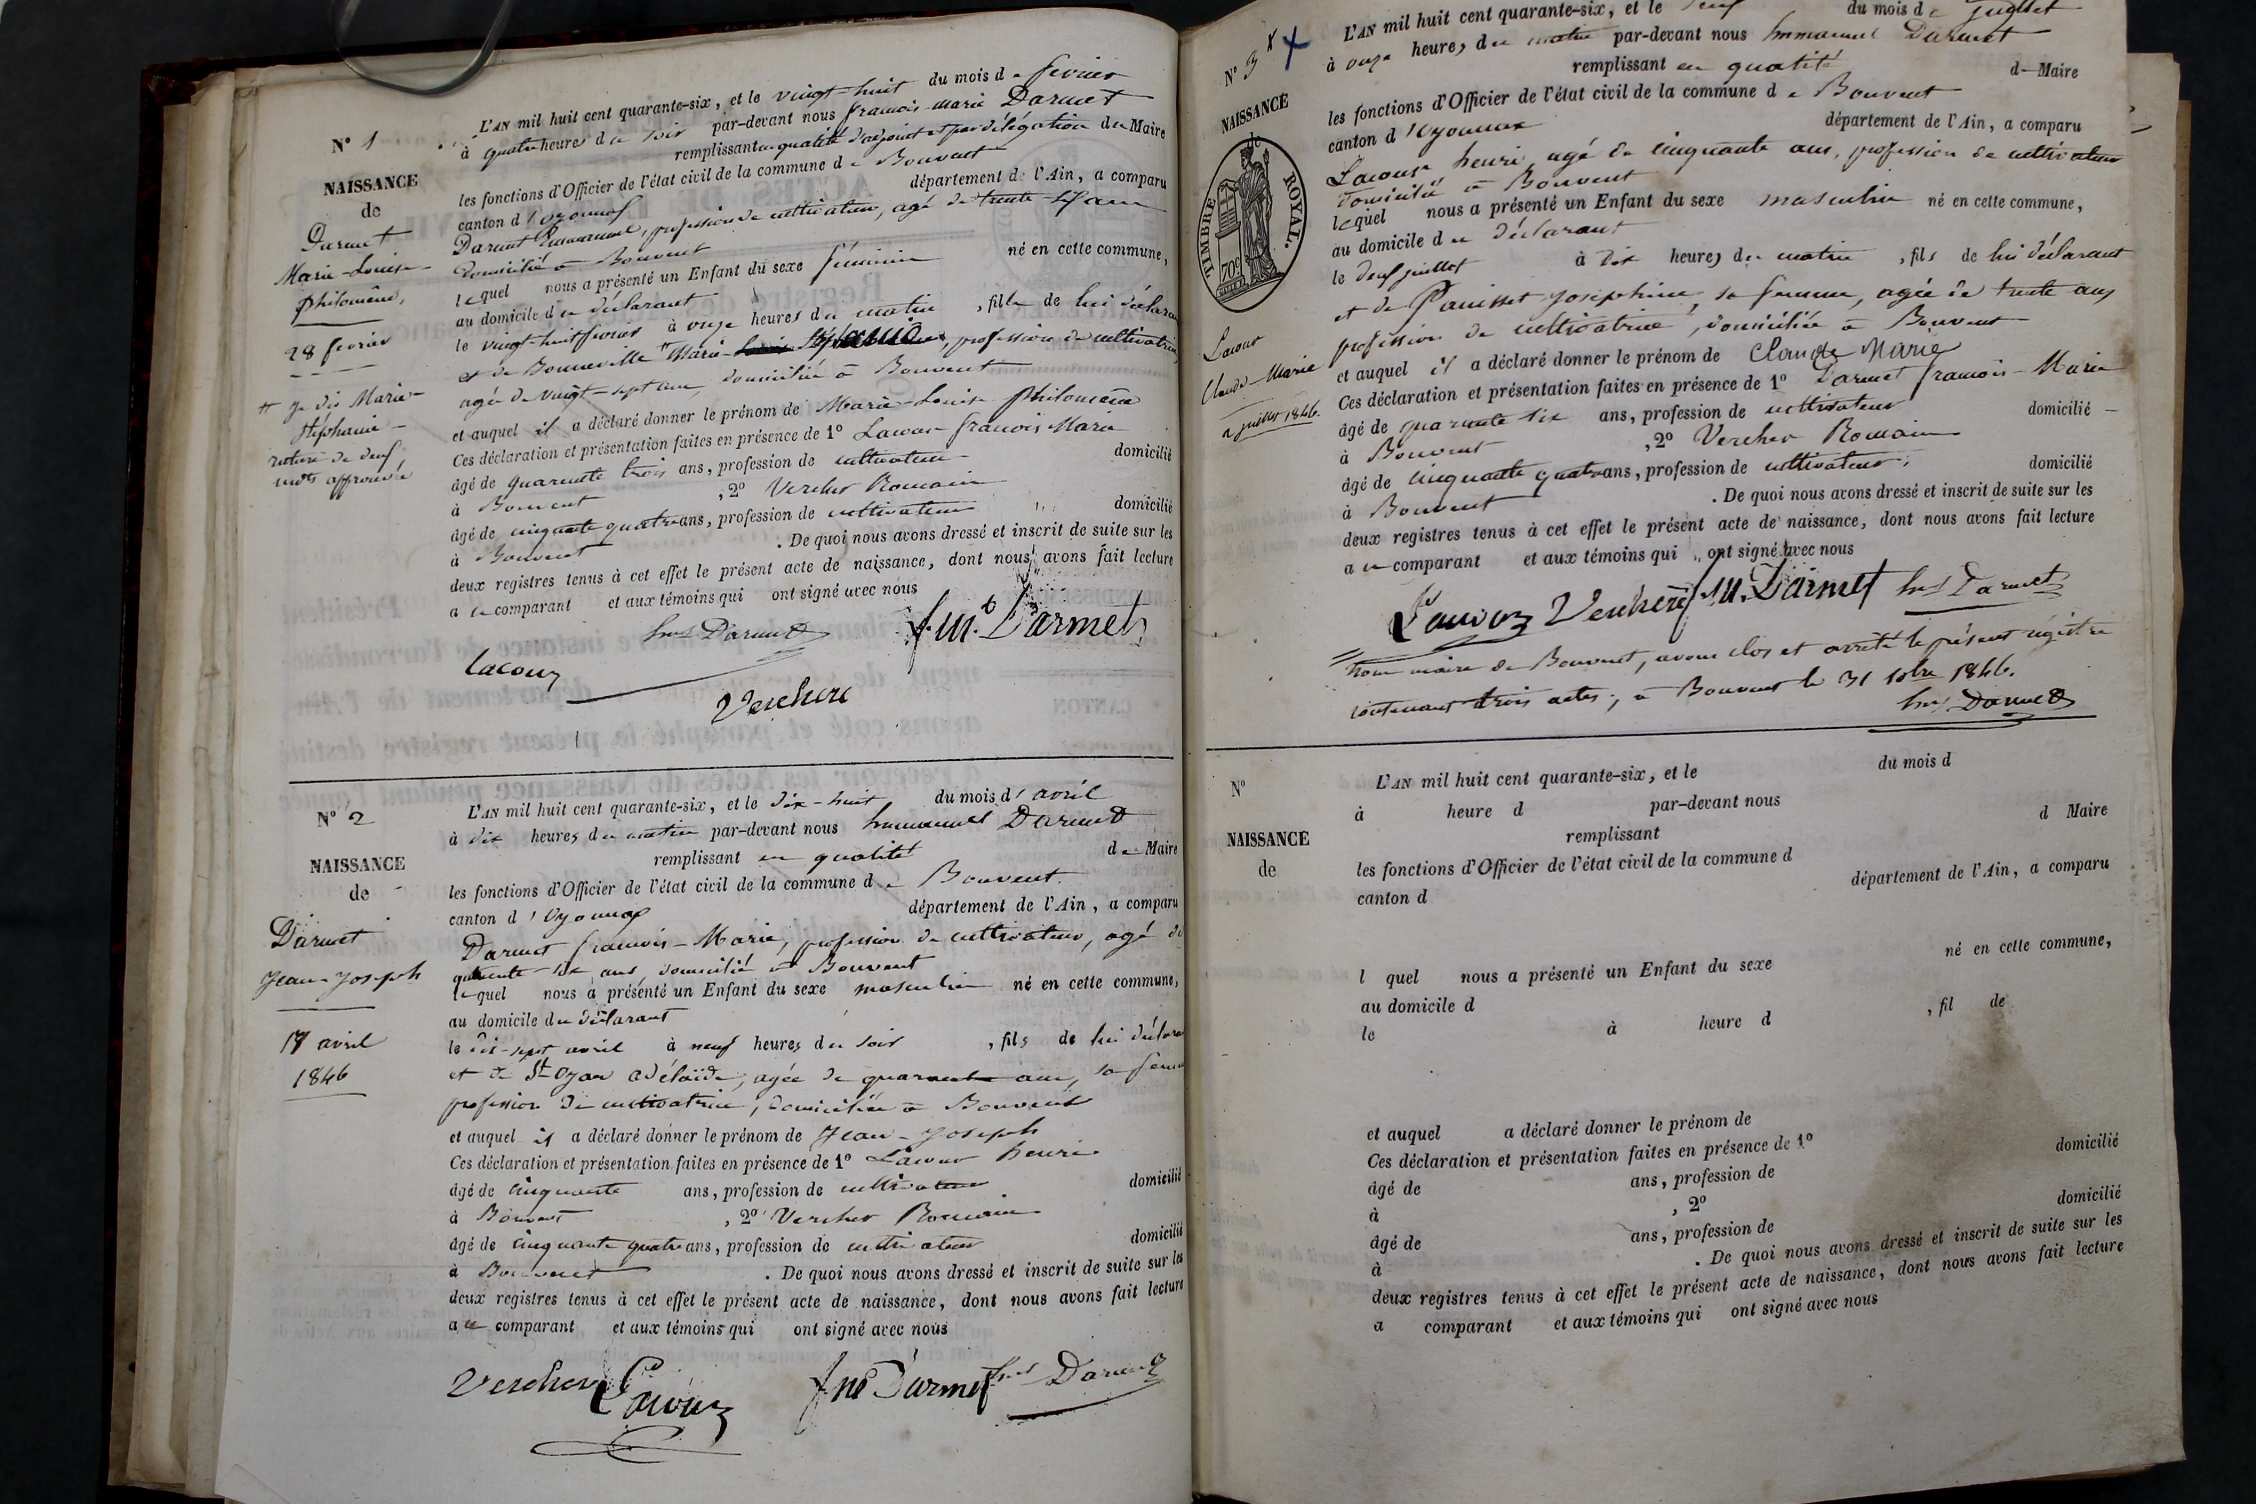 N° 1
NAISSANCE
de
Darmet
Marie-Louise-
philomène,
28 fevrier
# je dis Marie-
stéphanie -
rature de deux
mots approuvée
L'AN mil huit cent quarante-six, et le vingt-huit du mois de fevrier
à quatre heures du soir par-devant nous francois-marie Darmet
remplissant en qualité d'adjoint et par délégation du Maire
les fonctions d'Officier de l'état civil de la commune de Bouvent
canton d'oyonnax département de l'Ain, a comparu
Darmet Emmanuel, profession de cultivateur, agé de trente-
domicilié à Bouvent
lequel nous a présenté un Enfant du sexe féminin né en cette commune,
au domicile du déclarant
le vingt-huit fevrier à onze heures du matin, fille de lui déclarant
et de Bonneville # Marie- profession de cultivatrice,
agé de vingt-sept ans, domiciliée à Bouvent
et auquel il a déclaré donner le prénom de Marie-Louise philomène
Ces déclaration et présentation faites en présence de 1° Lacour francois Marie
âgé de quarante trois ans, profession de cultivateur domicilié
à Bouvent, 2° Vercher Romain
âgé de cinquante quatre ans, profession de cultivateur domicilié
à Bouvent. De quoi nous avons dressé et inscrit de suite sur les
deux registres tenus à cet effet le présent acte de naissance, dont nous avons fait lecture
au comparant et aux témoins qui ont signé avec nous
Darmet f. m. Darmet
Lacour
Verchere
N° 2
NAISSANCE
de
Darmet
Jean-Joseph
17 avril
1846
L'AN mil huit cent quarante-six, et le dix-huit du mois d'avril
à dix heures du matin par-devant nous Emmanuel Darmet
remplissant en qualité de Maire
les fonctions d'Officier de l'état civil de la commune de Bouvent
canton d'Oyonnax département de l'Ain, a comparu
Darmet francois-Marie, profession de cultivateur, agé de
quarante-six ans, domicilié à Bouvent
lequel nous a présenté un Enfant du sexe masculin né en cette commune,
au domicile du déclarant
le dix-sept avril à neuf heures du soir, fils de lui déclarant
et de St Oyan adélaïde, agée de quarante ans, sa femme
profession de cultivatrice, domiciliée à Bouvent
et auquel il a déclaré donner le prénom de Jean-Joseph
Ces déclaration et présentation faites en présence de 1° Lacour henri
âgé de cinquante ans, profession de cultivateur domicilié
à Bouvent, 2° Vercher Romain
âgé de cinquante quatre ans, profession de cultivateur domicilié
à Bouvent. De quoi nous avons dressé et inscrit de suite sur les
deux registres tenus à cet effet le présent acte de naissance, dont nous avons fait lecture
au comparant et aux témoins qui ont signé avec nous
Verchere Lacour Darmet Darmet
N° 3
NAISSANCE
de
TIMBRE ROYAL.
70c
Lacour
Claude-Marie
juillet 1846.
L'AN mil huit cent quarante-six, et le neuf du mois de juillet
à onze heures du matin par-devant nous Emmanuel Darmet
remplissant en qualité de Maire
les fonctions d'Officier de l'état civil de la commune de Bouvent
canton d'Oyonnax département de l'Ain, a comparu
Lacour henri, agé de cinquante ans, profession de cultivateur
domicilié à Bouvent
lequel nous a présenté un Enfant du sexe masculin né en cette commune,
au domicile du déclarant
le neuf juillet à dix heures du matin, fils de lui déclarant
et de Panisset josephine, sa femme, agée de trente ans
profession de cultivatrice, domiciliée à Bouvent
et auquel il a déclaré donner le prénom de Claude Marie
Ces déclaration et présentation faites en présence de 1° Darmet francois-Marie
âgé de quarante six ans, profession de cultivateur domicilié
à Bouvent, 2° Vercher Romain
âgé de cinquante quatre ans, profession de cultivateur domicilié
à Bouvent. De quoi nous avons dressé et inscrit de suite sur les
deux registres tenus à cet effet le présent acte de naissance, dont nous avons fait lecture
au comparant et aux témoins qui ont signé avec nous
Lacour Verchere f. M. Darmet Darmet
Nous maire de Bouvent, avons clos et arrêté le présent registre
contenant trois actes, à Bouvent le 31 10bre 1846.
Darmet
N°
NAISSANCE
de
L'AN mil huit cent quarante-six, et le du mois d
à heure d par-devant nous
remplissant d Maire
les fonctions d'Officier de l'état civil de la commune d
canton d département de l'Ain, a comparu
l quel nous a présenté un Enfant du sexe né en cette commune,
au domicile d
le à heure d , fil de
et auquel a déclaré donner le prénom de
Ces déclaration et présentation faites en présence de 1°
âgé de ans, profession de domicilié
à , 2°
âgé de ans, profession de domicilié
à . De quoi nous avons dressé et inscrit de suite sur les
deux registres tenus à cet effet le présent acte de naissance, dont nous avons fait lecture
a comparant et aux témoins qui ont signé avec nous